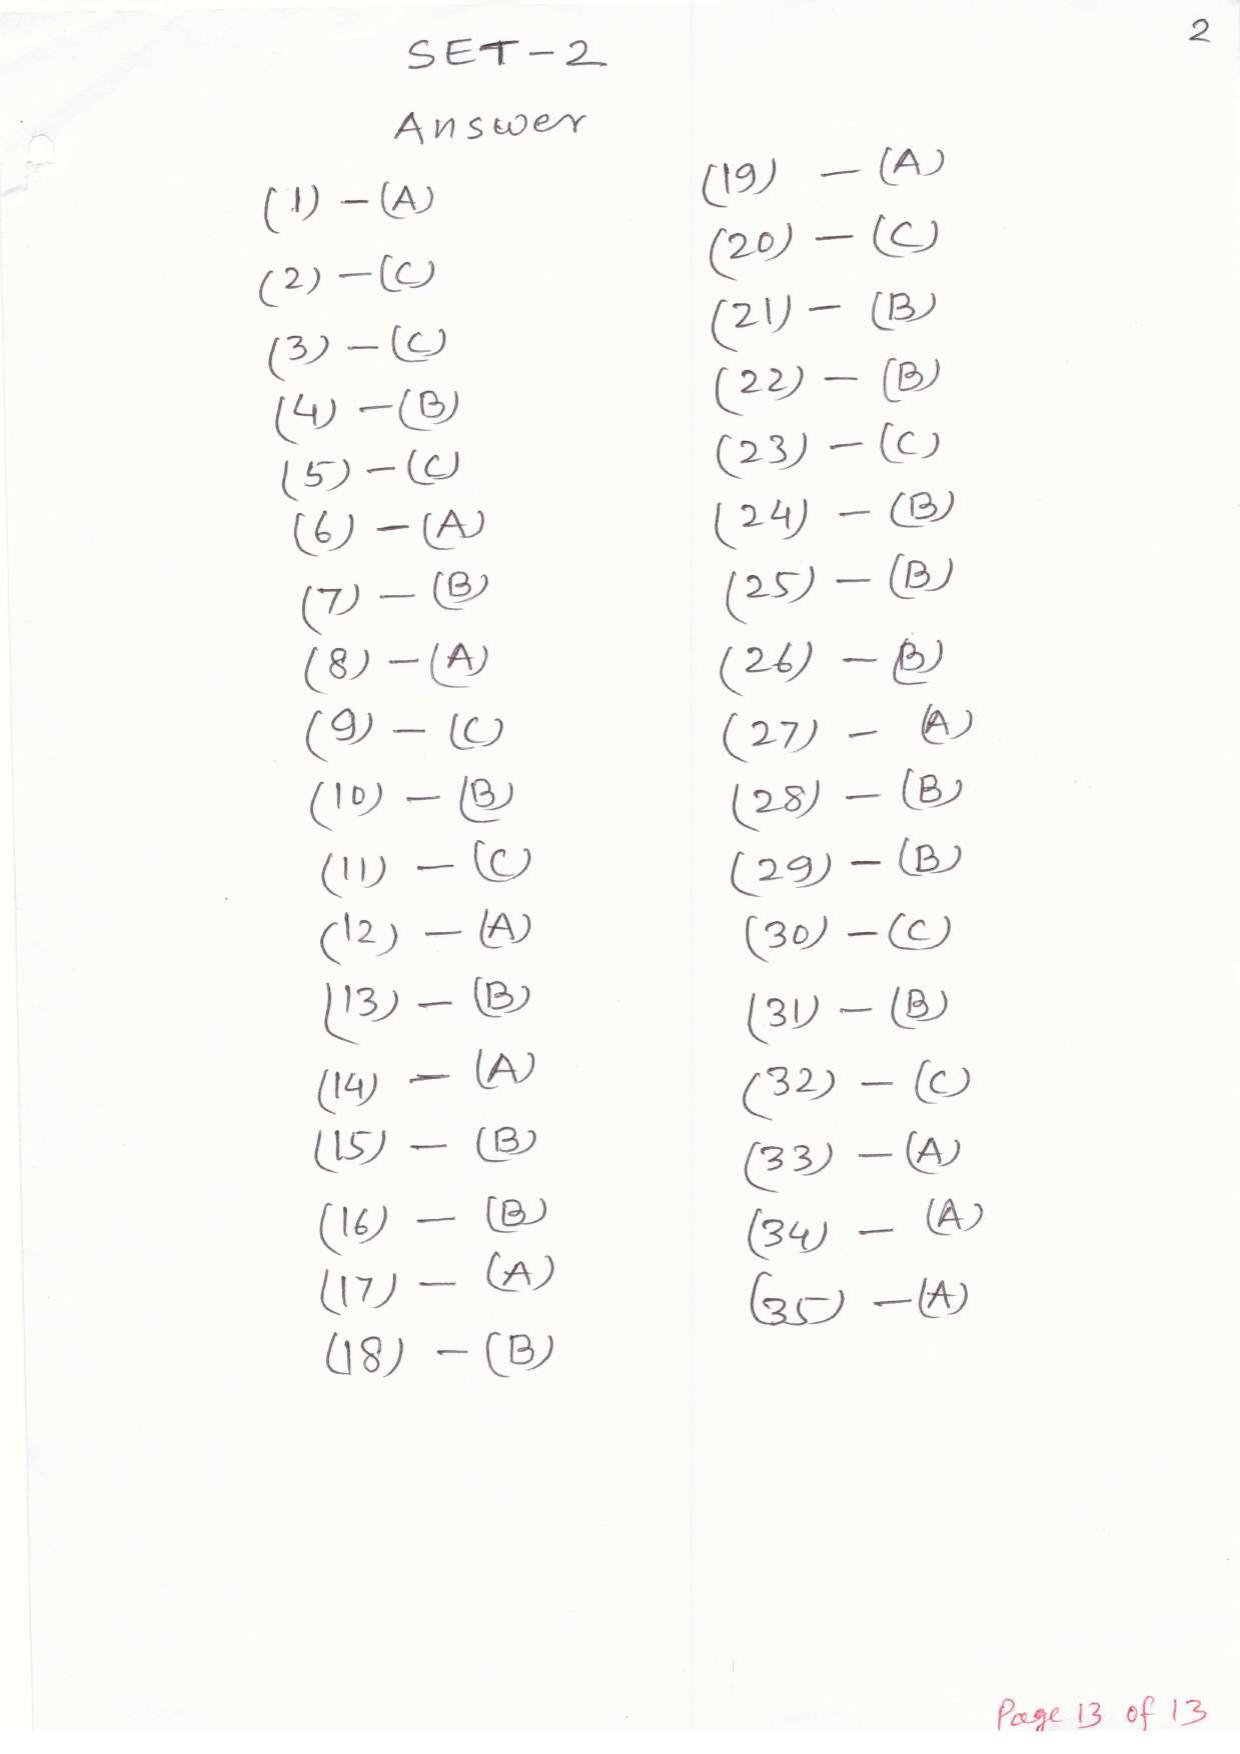 2
SET-2
Answer
(1) - (A)
(2) - (C)
(3) - (C)
(4) - (B)
(5) - (C)
(6) - (A)
(7) - (B)
(8) - (A)
(9) - (C)
(10) - (B)
(11) - (C)
(12) - (A)
(13) - (B)
(14) - (A)
(15) - (B)
(16) - (B)
(17) - (A)
(18) - (B)
(19) - (A)
(20) - (C)
(21) - (B)
(22) - (B)
(23) - (C)
(24) - (B)
(25) - (B)
(26) - (B)
(27) - (A)
(28) - (B)
(29) - (B)
(30) - (C)
(31) - (B)
(32) - (C)
(33) - (A)
(34) - (A)
(35) - (A)
Page 13 of 13